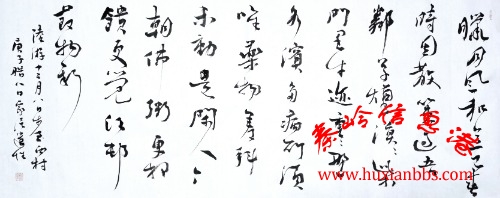 臘月風和意已春
時因散策過吾
鄰草烟漠漠柴
門里牛迹重重野
水濱多病所須
唯藥物差科
未動是閑人今
朝佛粥更相
饋更覺江邨
節物新
陸游十二月八日步至西村
庚子腊八日
秦岭信息港
www.huxianbbs.com